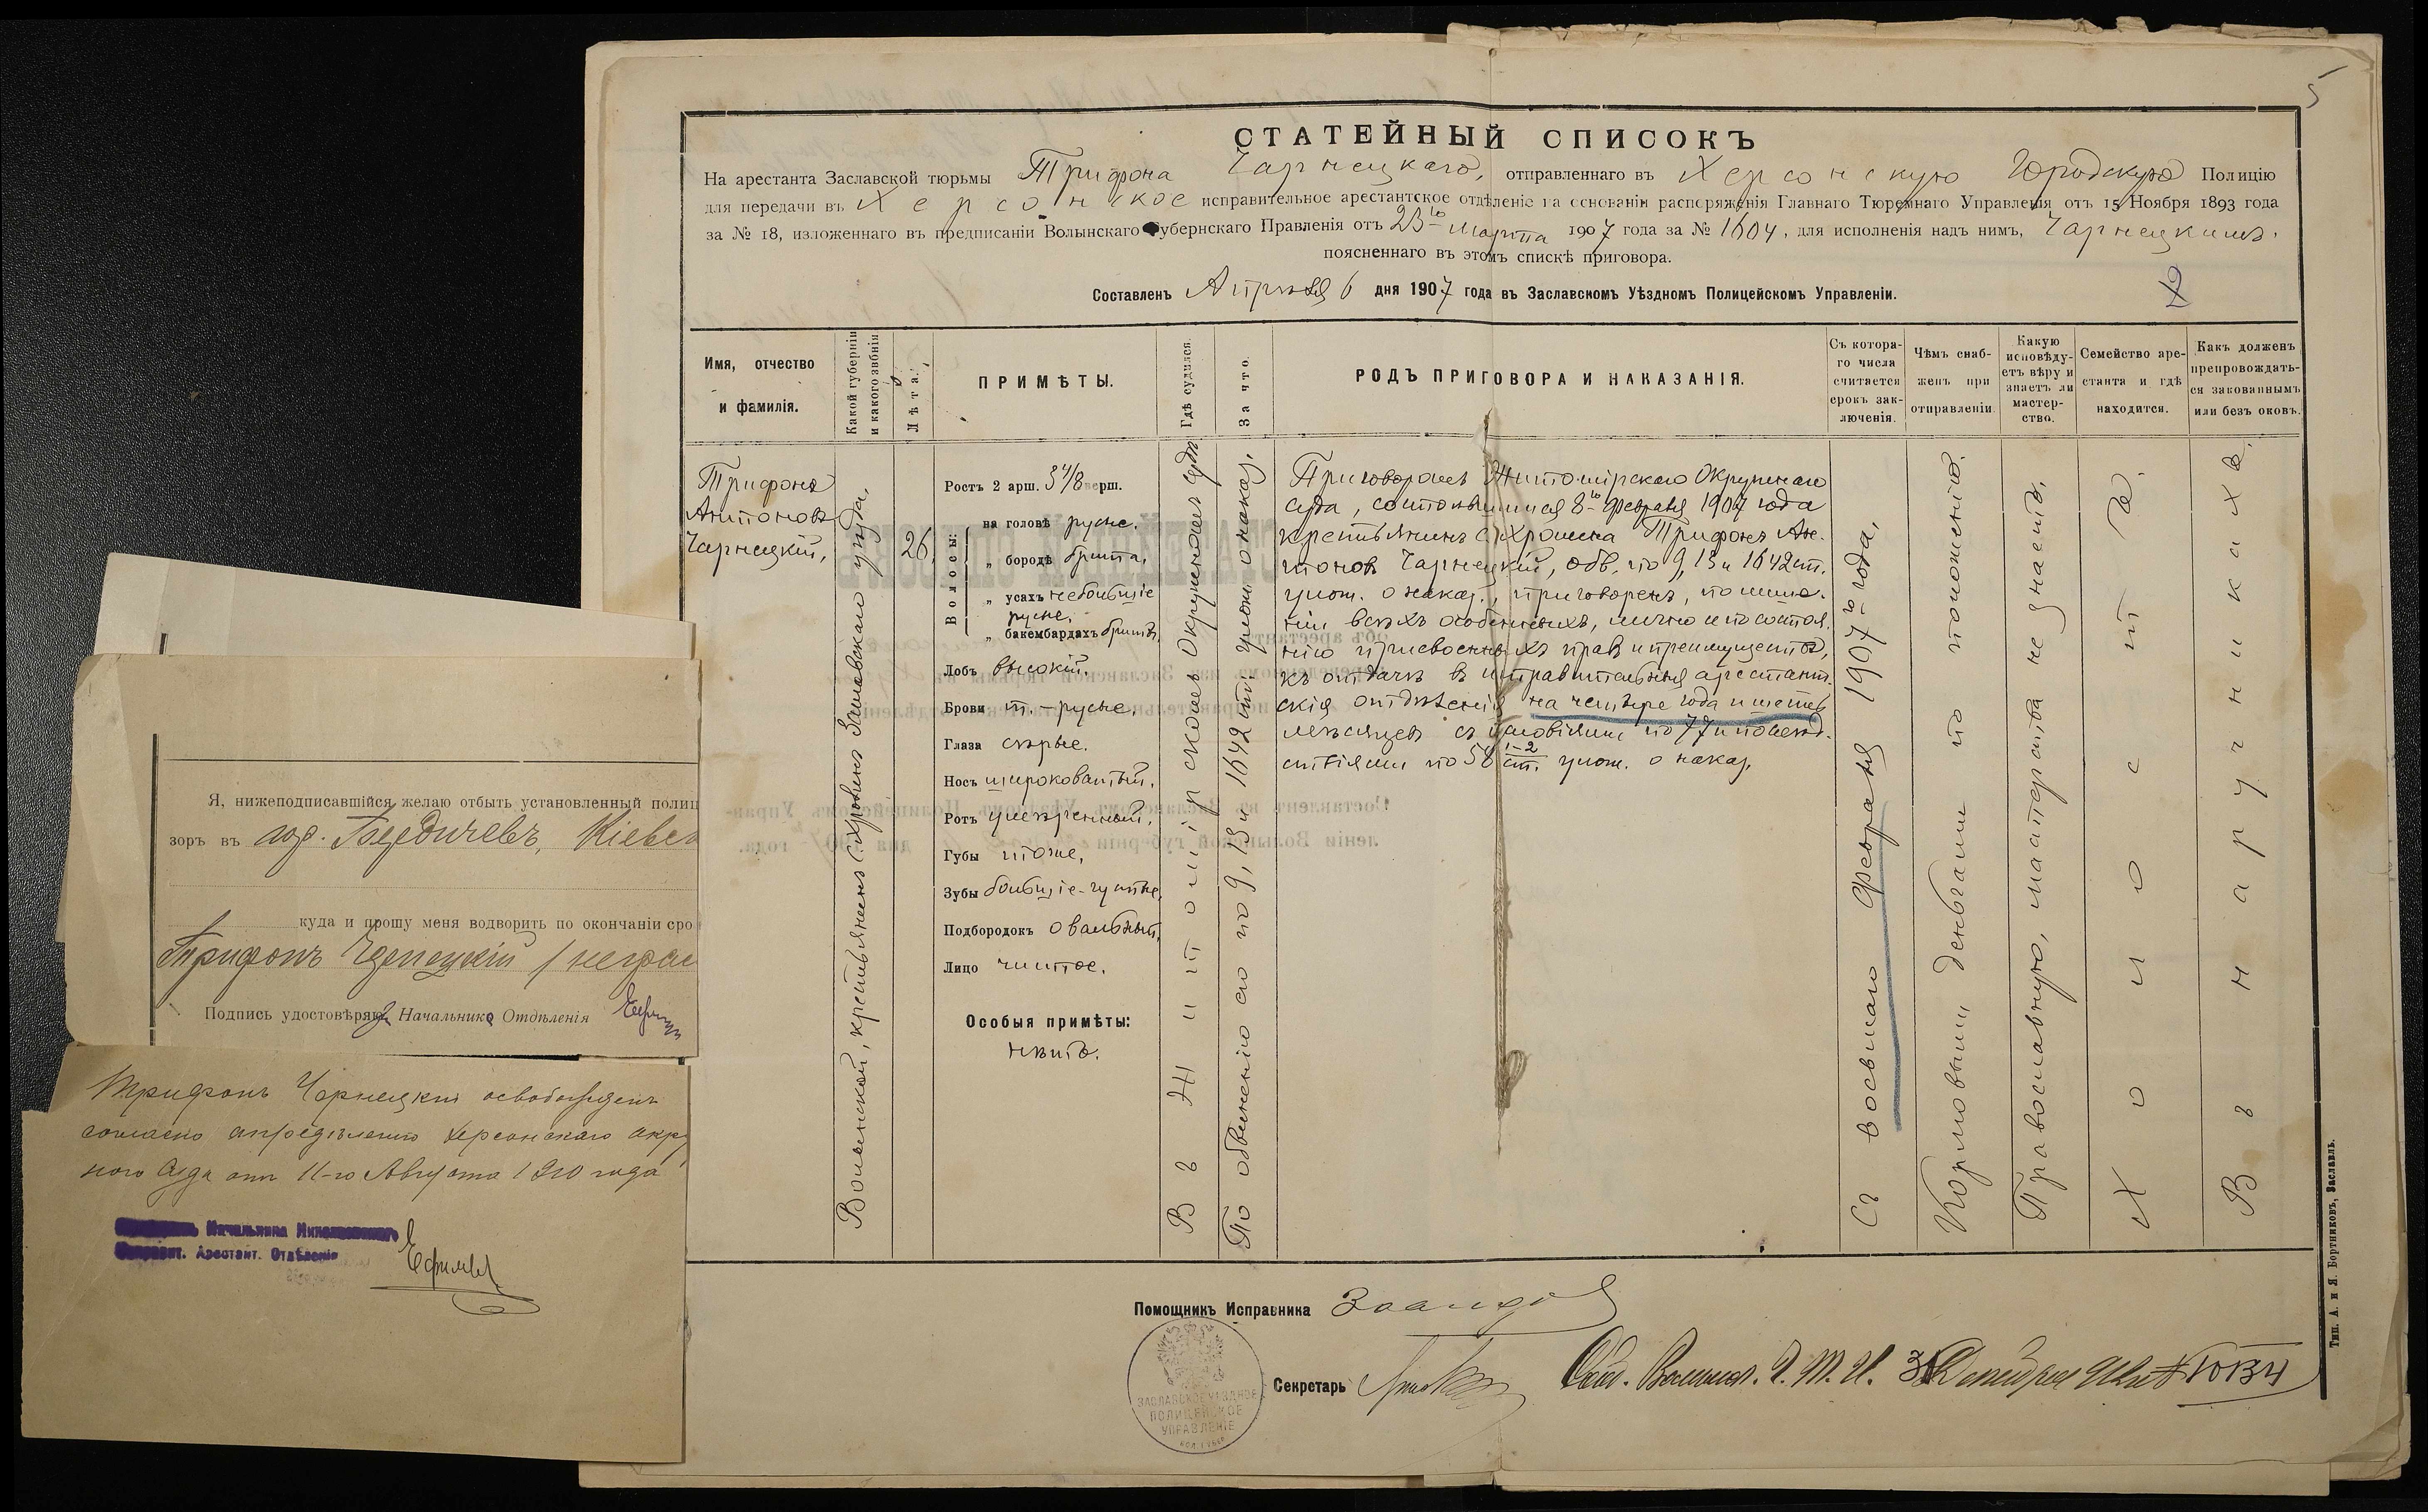 5
СТАТЕЙНЫЙ СПИСОКЪ
На арестанта Заславской тюрьмы Трифона Чарнецкаго, отправленнаго въ Херсонскую Городскую Полицію
для передачи въ Херсонское исправительное арестантское отдѣленіе на основаніи распоряженія Главнаго Тюремнаго Управленія отъ 15 Ноября 1893 года
за № 18, изложеннаго въ предписаніи Волынскаго Губернскаго Правленія отъ 23го Марта 1907 года за № 1604, для исполненія надъ нимъ, Чарнецкимъ,
поясненнаго въ этомъ спискѣ приговора.
Составленъ Апрѣля 6 дня 1907 года въ Заславскомъ Уѣздномъ Полицейскомъ Управленіи.
2
Имя, отчество
и фамилія.
Какой губерніи
и какого званія
Лѣта.
ПРИМѢТЫ.
Гдѣ судился.
За что.
РОДЪ ПРИГОВОРА И НАКАЗАНІЯ.
Съ котора-
го числа
считается
срокъ зак-
люченія.
Чѣмъ снаб-
женъ при
отправленіи.
Какую
исповѣду-
етъ вѣру и
знаетъ ли
мастер-
ство.
Семейство аре-
станта и гдѣ
находится.
Какъ долженъ
препровождать-
ся закованнымъ
или безъ оковъ.
Трифонъ
Антоновъ
Чарнецкій,
Волынской, крестьянинъ с. Хровинъ Заславскаго уѣзда,
26,
Ростъ 2 арш. 3 4/8 верш.
Волосы:
на головѣ русые.
„ бородѣ брита,
„ усахъ небольшіе
русые.
„ бакембардахъ бриты,
Лобъ высокій.
Брови т.-русые.
Глаза сѣрые.
Носъ широковатый.
Ротъ умѣренный.
Губы тоже,
Зубы большіе-чистые,
Подбородокъ овальный,
Лицо чистое.
Особыя примѣты:
нѣтъ.
Въ Житомірскомъ Окружномъ Судѣ
По обвиненію его по 9, 13 и 1642 ст. улож. о наказ.
Приговоромъ Житомірскаго Окружнаго
суда, состоявшимся 8го февраля 1907 года
крестьянинъ с. Хромина Трифонъ Ан-
тоновъ Чарнецкій, обв. по 9, 13 и 1642 ст.
улож. о наказ., приговоренъ, по лише-
ніи всѣхъ особенныхъ, лично и по состоя-
нію присвоенныхъ правъ и преимуществъ,
къ отдачѣ въ исправительныя арестант-
скія отдѣленія на четыре года и шесть
мѣсяцевъ съ условіями по 77 и послѣд-
ствіями по 58 1-2 ст. улож. о наказ.
Съ восьмаго февраля 1907го года,
Кормовыми деньгами по положенію.
Православную, мастерства не знаетъ,
Холостъ.
Въ наручникахъ.
Помощникъ Исправника
Секретарь
ЗАСЛАВСКОЕ УѢЗДНОЕ
ПОЛИЦЕЙСКОЕ
УПРАВЛЕНІЕ
Тип. А. и Я. Бортниковъ, Заславль.
Я, нижеподписавшійся желаю отбыть установленный полиц
зоръ въ гор. Бердичевъ, Кіевск
куда и прошу меня водворить по окончаніи сро
Трифонъ Чарнецкій / неграм
Подпись удостовѣряю Начальникъ Отдѣленія
Трифонъ Чарнецкій освобожденъ
согласно опредѣленію Херсонскаго окру
наго Суда отъ 11-го Августа 1910 года
Начальника Николаевскаго
Исправит. Арестант. Отдѣленія
Ефимы